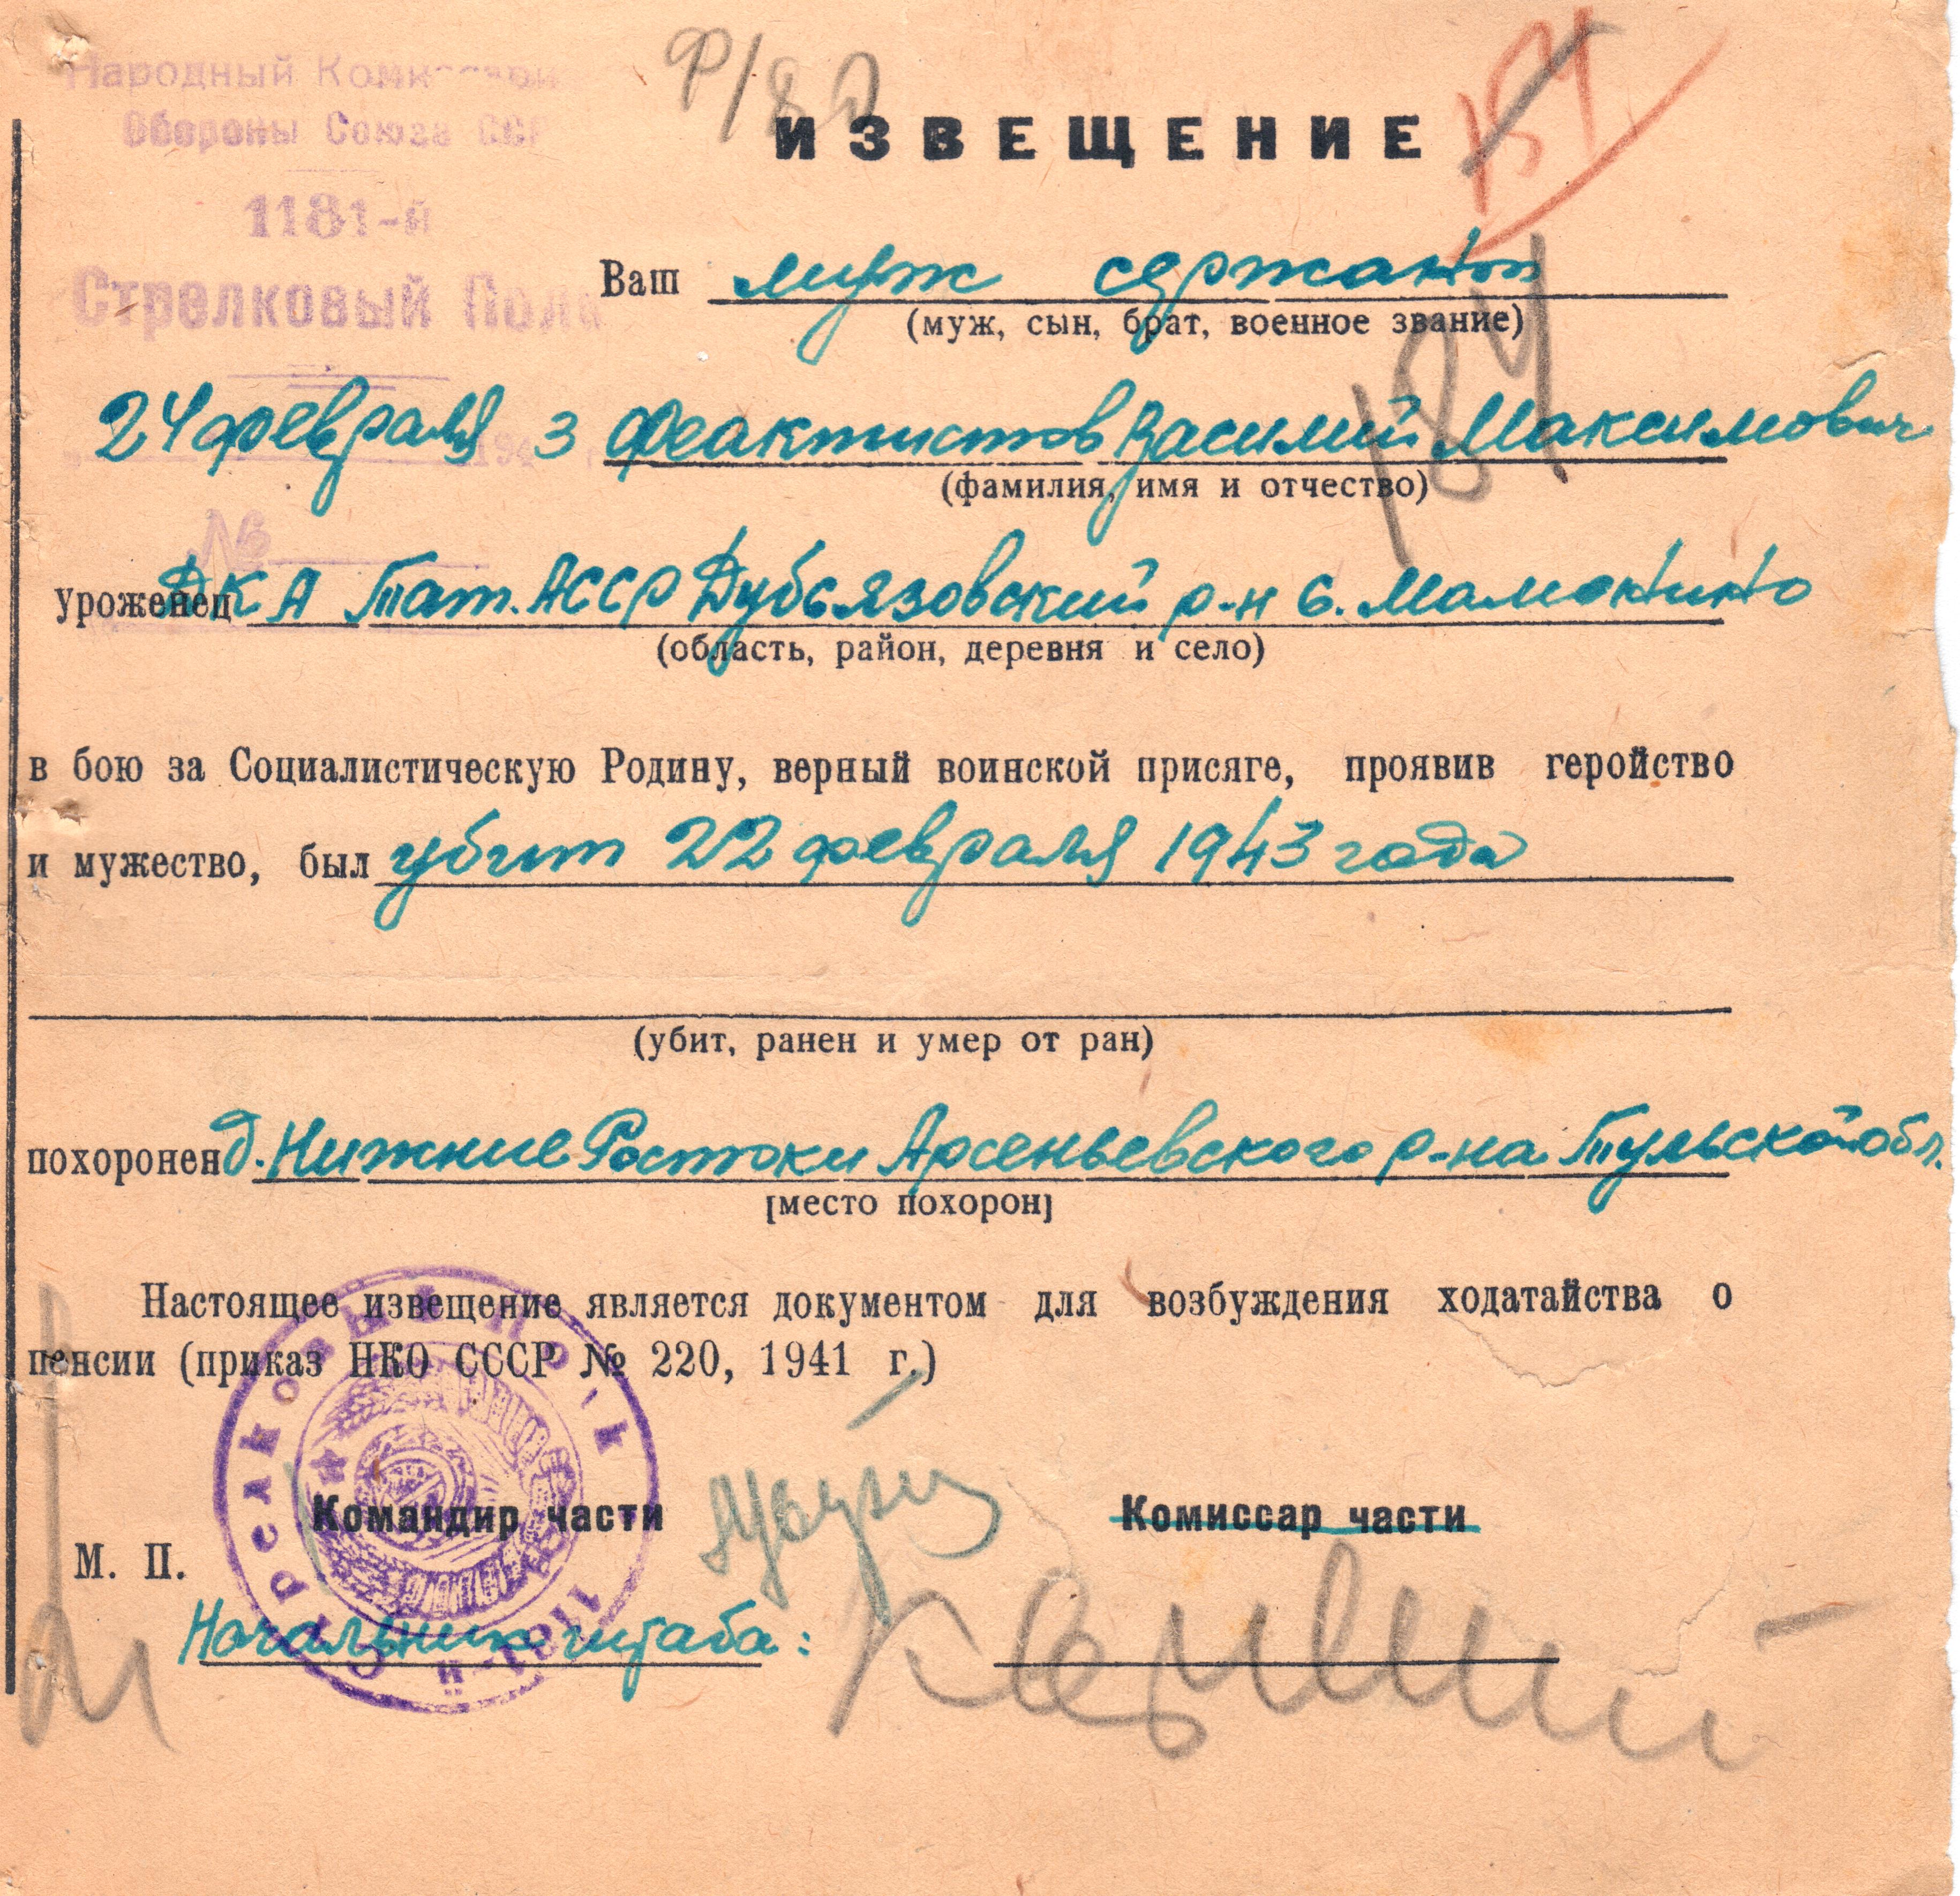 Ф/80
ИЗВЕЩЕНИЕ
151
Народный Комиссари
Обороны Союза ССР
1181-й
Стрелковый Полк
Ваш муж сержант
(муж, сын, брат, военное звание)
184
24 февраля 1943 Феактистов Василий Максимович
(фамилия, имя и отчество)
№
уроженец ДКА Тат. АССР Дубьязовский р-н с. Мамонино
(область, район, деревня и село)
в бою за Социалистическую Родину, верный воинской присяге, проявив геройство
и мужество, был убит 22 февраля 1943 года
(убит, ранен и умер от ран)
похоронен д. Нижние Ростоки Арсеньевского р-на Тульской обл.
[место похорон]
Настоящее извещение является документом для возбуждения ходатайства о
пенсии (приказ НКО СССР № 220, 1941 г.)
Стрелковый Полк 1181-й
Командир части
Комиссар части
М. П.
Начальник штаба: